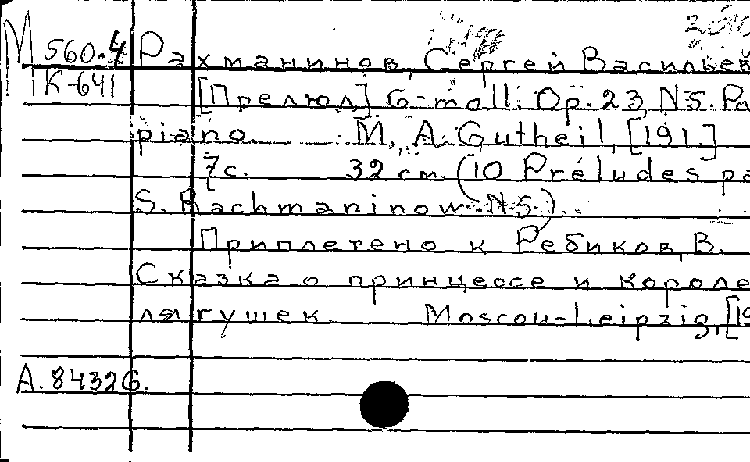 М 560.4 Рахманинов, Сергей Васильев
К-641 [Прелюд] G-moll. Op. 23, N 5. Po
piano. М., A. Gutheil, [191.]
7 с. 32 см. (10 Préludes pa
S. Rachmaninow N 5.)
Приплетено к Ребиков, В.
Сказка о принцессе и короле
лягушек. Moscou-Leipzig, [19
А. 84326.